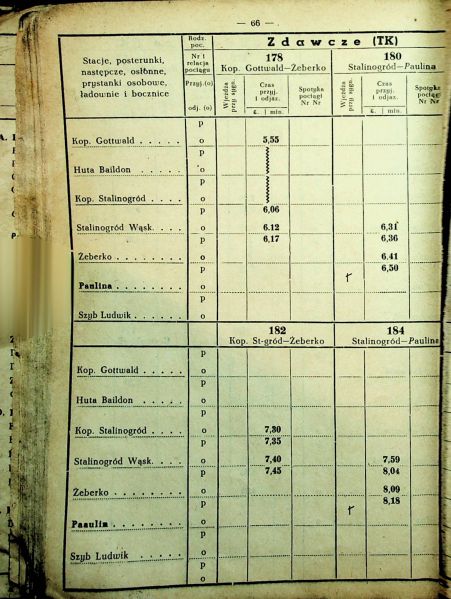 — 66 —
Stacje, posterunki,
następcze, osłonne,
przystanki osobowe,
ładownie i bocznice
Rodz.
poc.
Nr i
relacja
pociągu
Przyj.(o)
odj. (o)
Zdawcze (TK)
178
Kop. Gottwald—Żeberko
180
Stalinogród—Paulina
Wjeżdża
przy sygn.
Czas
przyj.
i odjaz.
g. | min.
Spotyka
pociągi
Nr Nr
Wjeżdża
przy sygn.
Czas
przyj.
i odjaz.
g. | min.
Spotyka
pociągi
Nr Nr
p
Kop. Gottwald . . . . . o 5,55
p
Huta Baildon . . . . . o
p
Kop. Stalinogród . . . . o
p 6,06
Stalinogród Wąsk. . . . o 6.12 6,31
p 6,17 6,36
Żeberko . . . . . . . . o 6,41
p 6,50
Paulina . . . . . . . . o
p
Szyb Ludwik . . . . . o
182
Kop. St-gród—Żeberko
184
Stalinogród—Paulina
p
Kop. Gottwald . . . . . o
p
Huta Baildon . . . . . o
p
Kop. Stalinogród . . . . o 7,30
p 7,35
Stalinogród Wąsk. . . . o 7,40 7,59
p 7,45 8,04
Żeberko . . . . . . . . o 8,09
p 8,18
Paaulin . . . . . . . . o
p
Szyb Ludwik . . . . . o
p
o